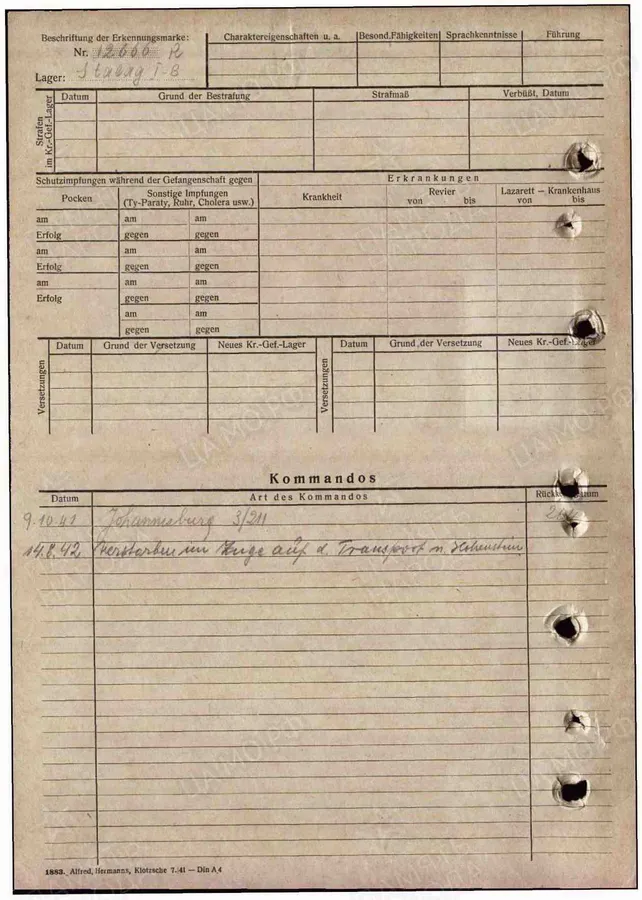 Beschriftung der Erkennungsmarke:
Nr. 12666 R
Lager: Stalag I-B
Charaktereigenschaften u. a.
Besond. Fähigkeiten
Sprachkenntnisse
Führung
Strafen im Kr.-Gef.-Lager
Datum
Grund der Bestrafung
Strafmaß
Verbüßt, Datum
Schutzimpfungen während der Gefangenschaft gegen
Pocken
Sonstige Impfungen
(Ty-Paraty, Ruhr, Cholera usw.)
am am am
Erfolg gegen gegen
am am am
Erfolg gegen gegen
am am am
Erfolg gegen gegen
am am
gegen gegen
Erkrankungen
Krankheit
Revier
von bis
Lazarett — Krankenhaus
von bis
Versetzungen
Datum
Grund der Versetzung
Neues Kr.-Gef.-Lager
Versetzungen
Datum
Grund der Versetzung
Neues Kr.-Gef.-Lager
Kommandos
Datum
Art des Kommandos
9.10.41 Johannisburg 3/211
14.8.42 Verstorben im Zuge auf d. Transport n. Hohenstein
1883. Alfred Hermanns, Klotzsche 7. 41 — Din A 4
ЦАМО РФ